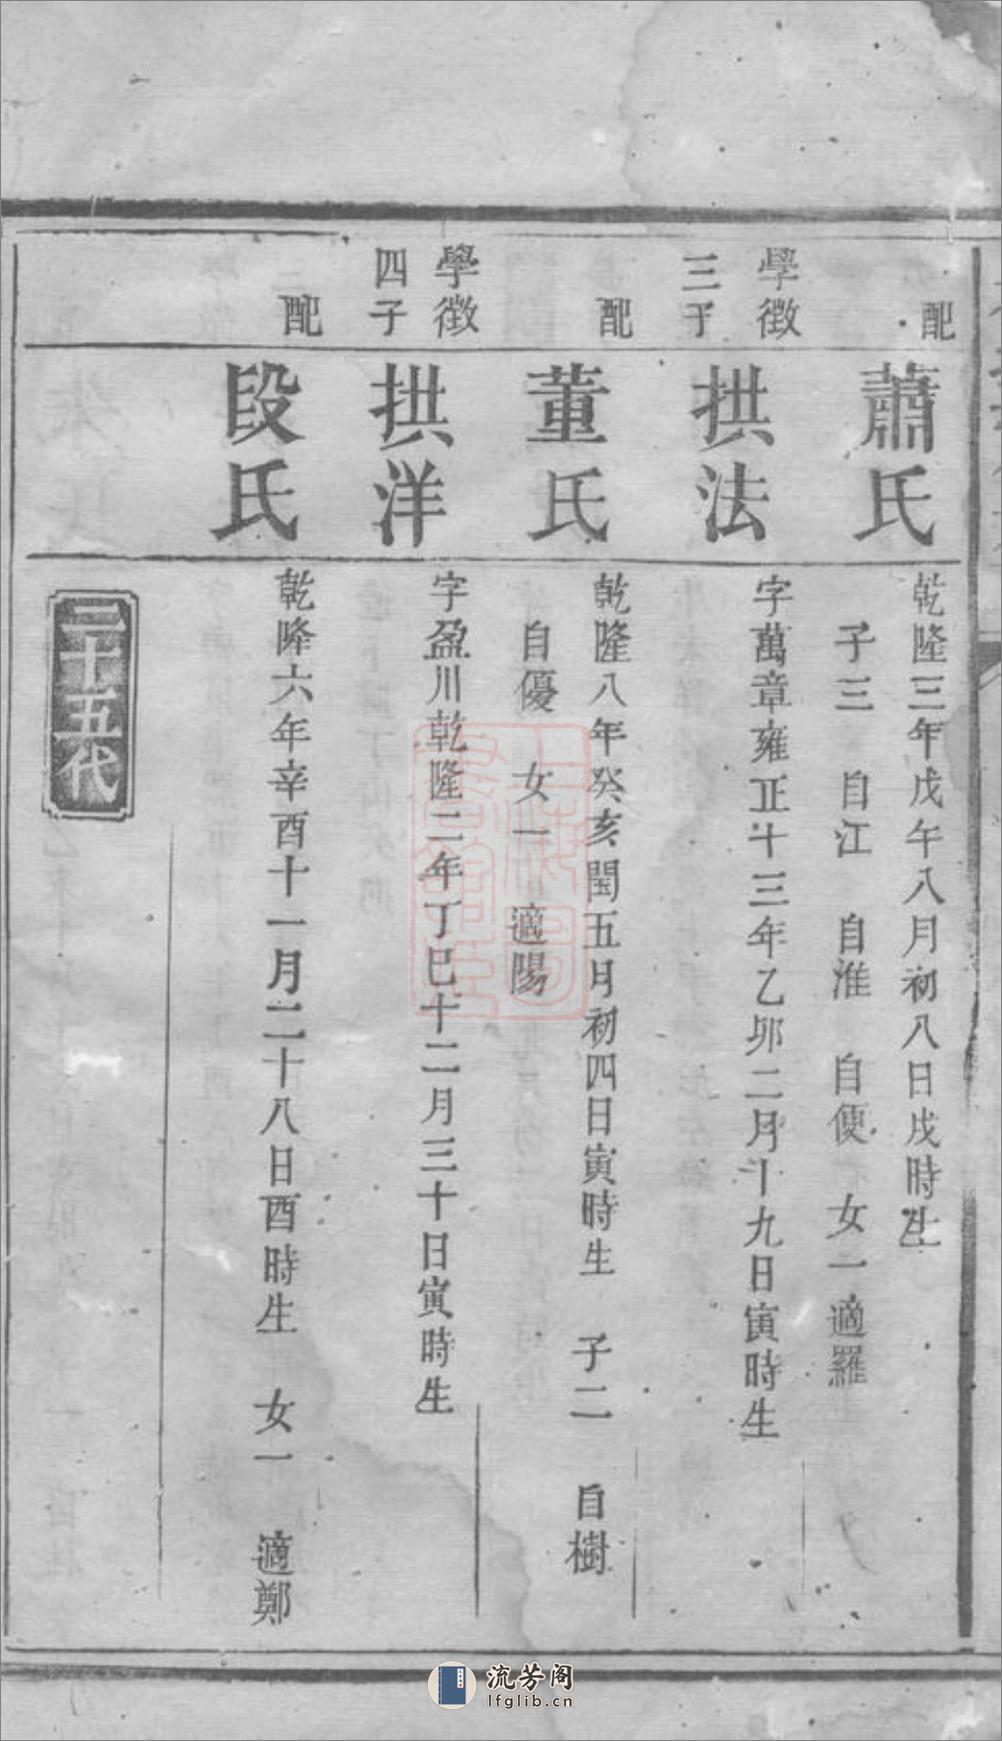 配
蕭氏
乾隆三年戊午八月初八日戌時生
子三 自江 自淮 自便 女一適羅
學徵
三子
拱法
字萬章雍正十三年乙卯二月十九日寅時生
配
董氏
乾隆八年癸亥閏五月初四日寅時生 子二 自樹
自優 女一 適陽
學徵
四子
拱洋
字盈川乾隆二年丁巳十二月三十日寅時生
配
段氏
乾隆六年辛酉十一月二十八日酉時生 女一 適鄭
二十五代
流芳阁
lfglib.cn